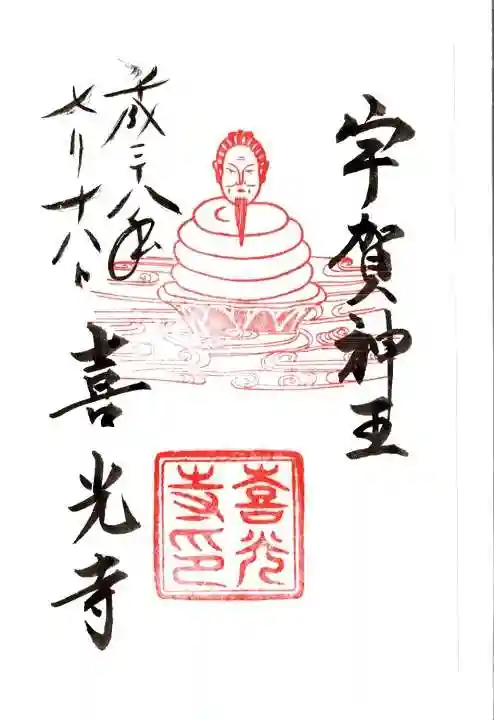 宇賀神王
喜光寺印
平成二十八年
七月十八日
喜光寺